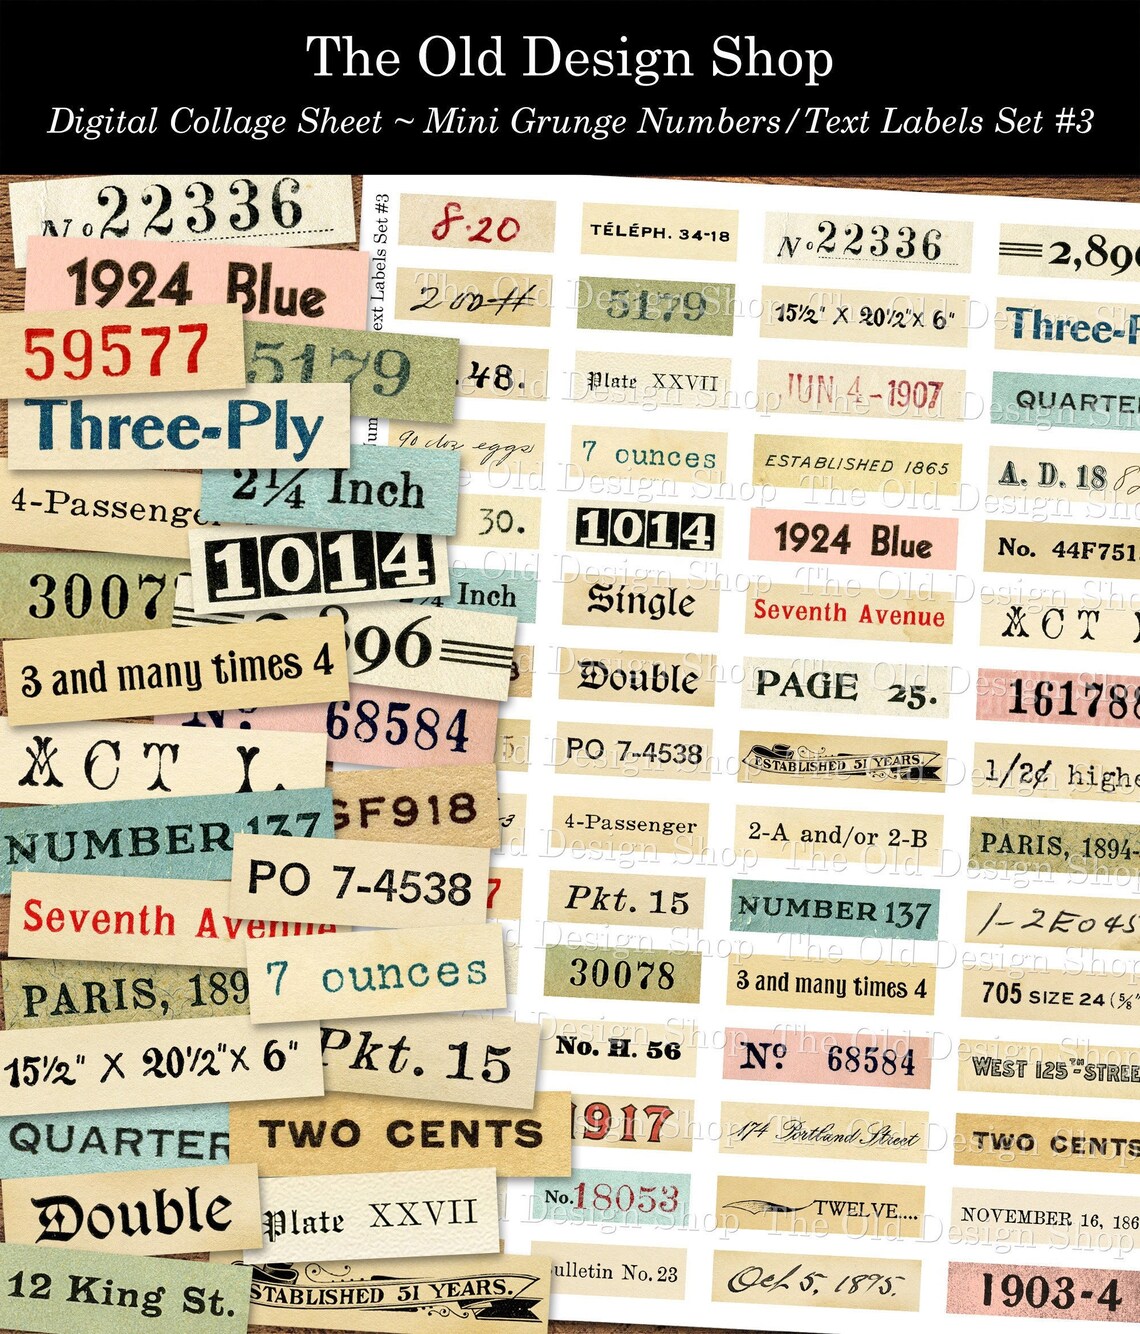 The Old Design Shop
Digital Collage Sheet ~ Mini Grunge Numbers/Text Labels Set #3
No 22336
1924 Blue
59577
5179
Three-Ply
2¼ Inch
4-Passenger
1014
30078
2,896
3 and many times 4
No. 68584
ACT I.
GF918
NUMBER 137
PO 7-4538
Seventh Avenue
7 ounces
PARIS, 189
15½" X 20½" X 6"
Pkt. 15
QUARTER
TWO CENTS
Double
Plate XXVII
12 King St.
ESTABLISHED 51 YEARS.
ext Labels Set #3
8.20
TÉLÉPH. 34-18
No 22336
2,890
200#
5179
15½" X 20½" X 6"
Three-P
.48.
Plate XXVII
JUN 4-1907
QUARTE
90 doz eggs
7 ounces
ESTABLISHED 1865
A. D. 18
30.
1014
1924 Blue
No. 44F751
¼ Inch
Single
Seventh Avenue
ACT
Double
PAGE 25.
16178
PO 7-4538
ESTABLISHED 51 YEARS.
1/2¢ highe
4-Passenger
2-A and/or 2-B
PARIS, 1894-
Pkt. 15
NUMBER 137
1-2E045
30078
3 and many times 4
705 SIZE 24 (⅝"
No. H. 56
No. 68584
WEST 125TH-STREE
1917
174 Portland Street
TWO CENTS
No. 18053
TWELVE....
NOVEMBER 16, 186
ulletin No. 23
Oct 5, 1875.
1903-4
The Old Design Shop